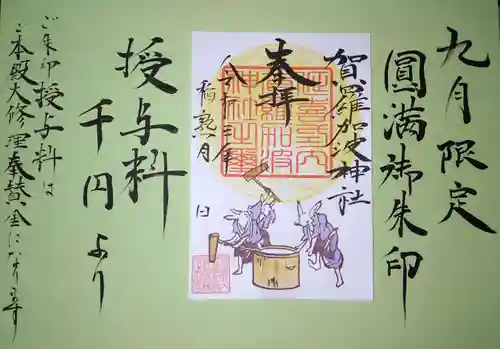 九月限定
圓満御朱印
賀羅加波神社
奉拝
令和三年
稲熟月
日
授与料
千円より
ご朱印授与料は
ご本殿大修理奉賛金になります